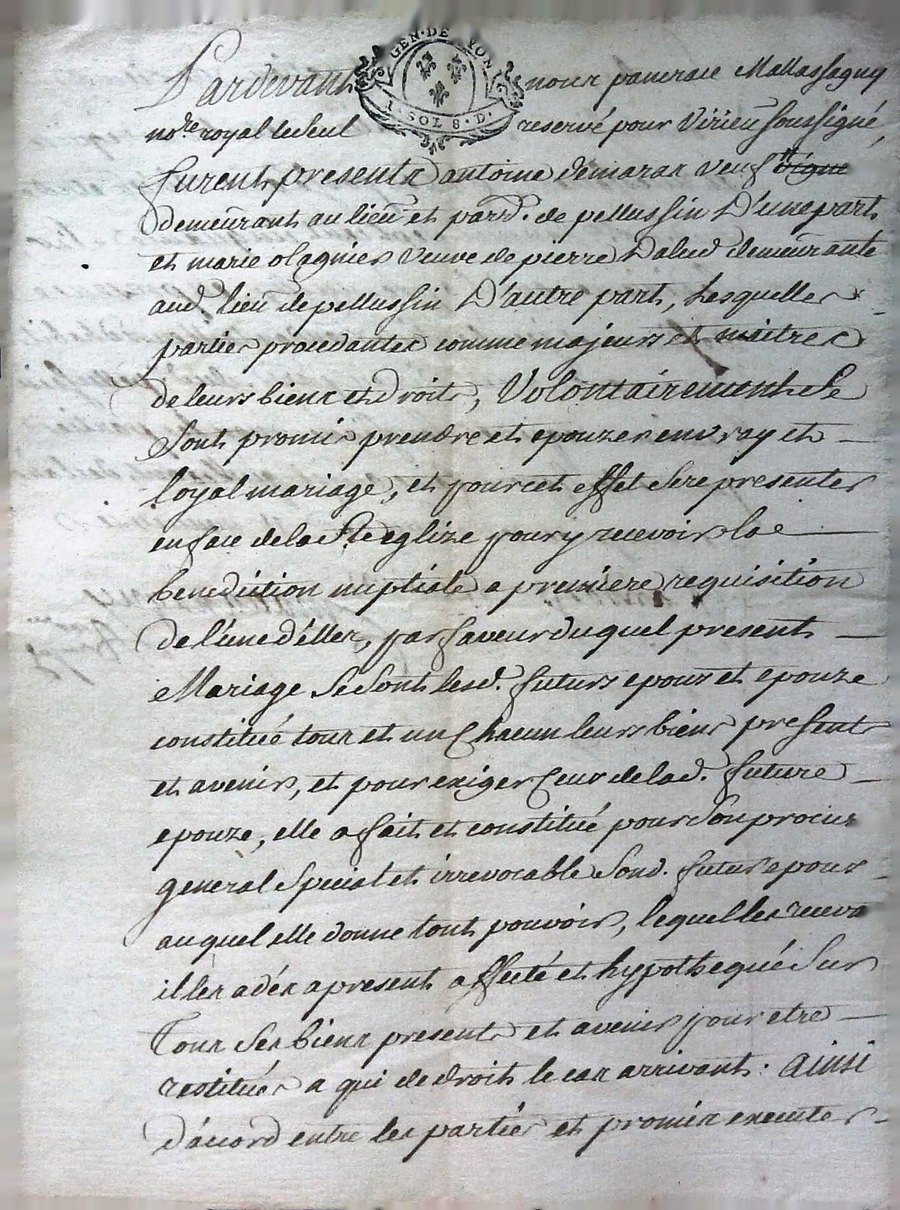 GEN·DE LYON
1 SOL 8·D·
Pardevant nous pancrace Mallassagny
no.re royal le seul reservé pour Virieu soussigné,
furent presents antoine demaras veuf
demeurant au lieu et parr. de pellussin D'une part
et marie olagnier veuve de pierre Dalud demeurante
aud. lieu de pellussin D'autre part, Lesquelles
parties procedantes comme majeurs et maitres
de leurs biens et droits, Volontairement Se
Sont promis prendre et epouzer en vray et
loyal mariage, et pour cet effet Se representer
en face de la Ste eglize pour y recevoir la
benediction nuptiale a premiere requisition
de l'une d'elles, par faveur duquel present
Mariage Se Sont lesd. futurs epoux et epouze
constitué tous et un Chacun leurs biens presents
et avenir, et pour exiger Ceux de lad. future
epouze, elle a fait et constitué pour Son procur
general Special et irrevocable Sond. futur epoux
auquel elle donne tout pouvoir, lequel les recevant
il les a dés apresent affecté et hypothequé Sur
Tous Ses biens presents et avenir pour etre
restitués a qui de droit le cas arrivant. Ainsi
d'accord entre les parties et promis executer